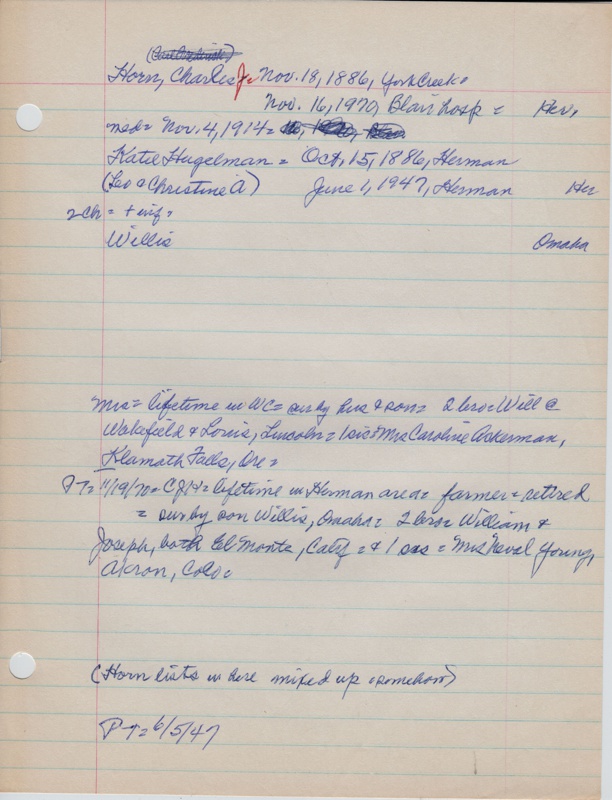 Horn, Charles J= Nov. 18, 1886, York Creek=
Nov. 16, 1970, Blair hosp = Her,
md= Nov. 4, 1914=
Katie Hugelman = Oct, 15, 1886, Herman
(Leo & Christine A) June 1, 1947, Herman Her
2 ch = + inf=
Willis Omaha
Mrs= lifetime in WC= sur by hus & son= 2 bro= Will @
Wakefield & Louis, Lincoln= 1 sis= Mrs Caroline Ackerman,
Klamath Falls, Ore=
PT= 11/19/70= CJH= lifetime in Herman area= farmer= retired
= sur by son Willis, Omaha= 2 bro= William &
Joseph, both El Monte, Calif = & 1 sis = Mrs Naval Young,
Akron, Colo=
(Horn lists in here mixed up somehow)
PT= 6/5/47